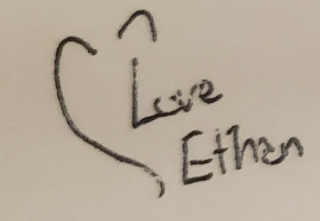 Love
Ethan